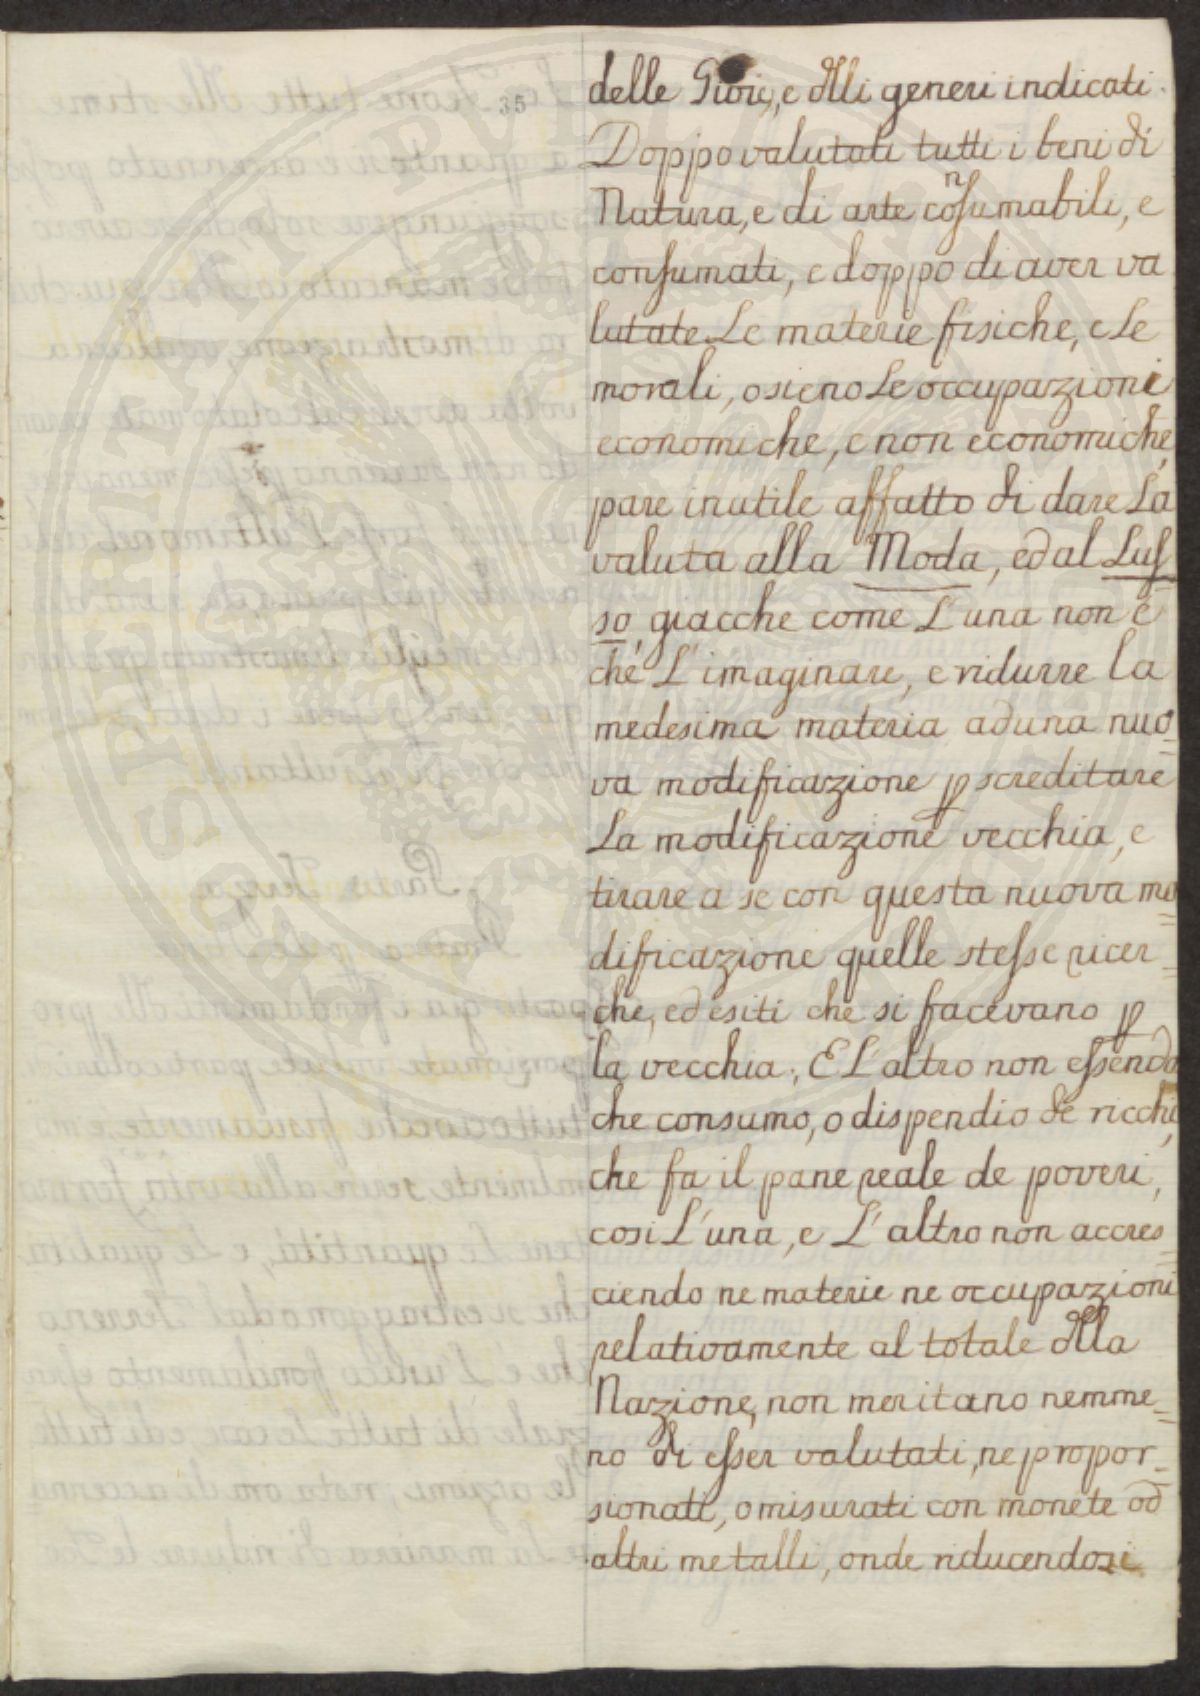 35
delle Gioie, e dlli generi indicati.
Doppo valutati tutti i beni di
Natura, e di arte consumabili, e
consumati, e doppo di aver va
lutate Le materie fisiche, e Le
morali, o sieno Le occupazioni
economiche, e non economiche,
pare inutile affatto di dare La
valuta alla Moda, ed al Lus
so, giacche come L'una non é
ché L'imaginare, e ridurre la
medesima materia ad una nuo=
va modificazione p screditare
La modificazione vecchia, e
tirare a se con questa nuova mo=
dificazione quelle stesse ricer=
che, ed esiti che si facevano p
la vecchia; E L'altro non essendo
che consumo, o dispendio de ricchi,
che fa il pane reale de poveri,
cosi L'una, e L'altro non accres=
ciendo ne materie ne occupazioni
relativamente al totale dlla
Nazione, non meritano nemme=
no di esser valutati, ne propor=
sionati, o misurati con monete od
altri metalli, onde riducendosi